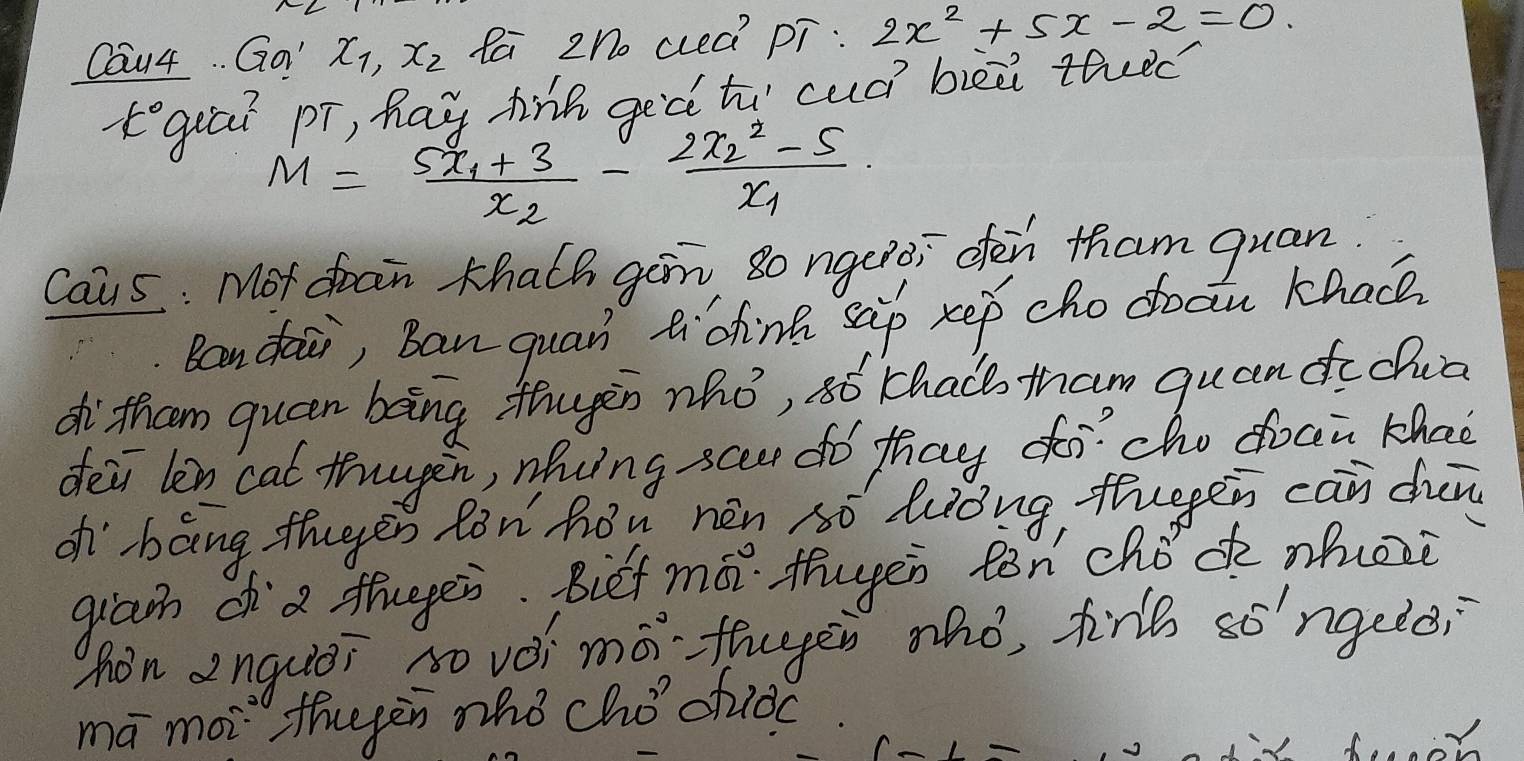 Câu 4. Gọi x₁, x₂ là 2 no của PT: 2x² + 5x - 2 = 0.
k° giải PT, hãy tính giá trị của biểu thức
M = \frac{5x₁ + 3}{x₂} - \frac{2x₂² - 5}{x₁}.
Câu 5: Một đoàn khách gồm 80 người đến tham quan.
Ban đầu, Ban quản lí định sắp xếp cho đoàn khách
đi tham quan bằng thuyền nhỏ, số khách tham quan đc chia
đều lên các thuyền, nhưng sau đó thay đổi cho đoàn khác
đi bằng thuyền lớn hơn nên số lượng thuyền cần dùng
giảm đi 2 thuyền. Biết mỗi thuyền lớn chở đc nhiều
hơn 2 người so với mỗi thuyền nhỏ, tính số người
mà mỗi thuyền nhỏ chở được.